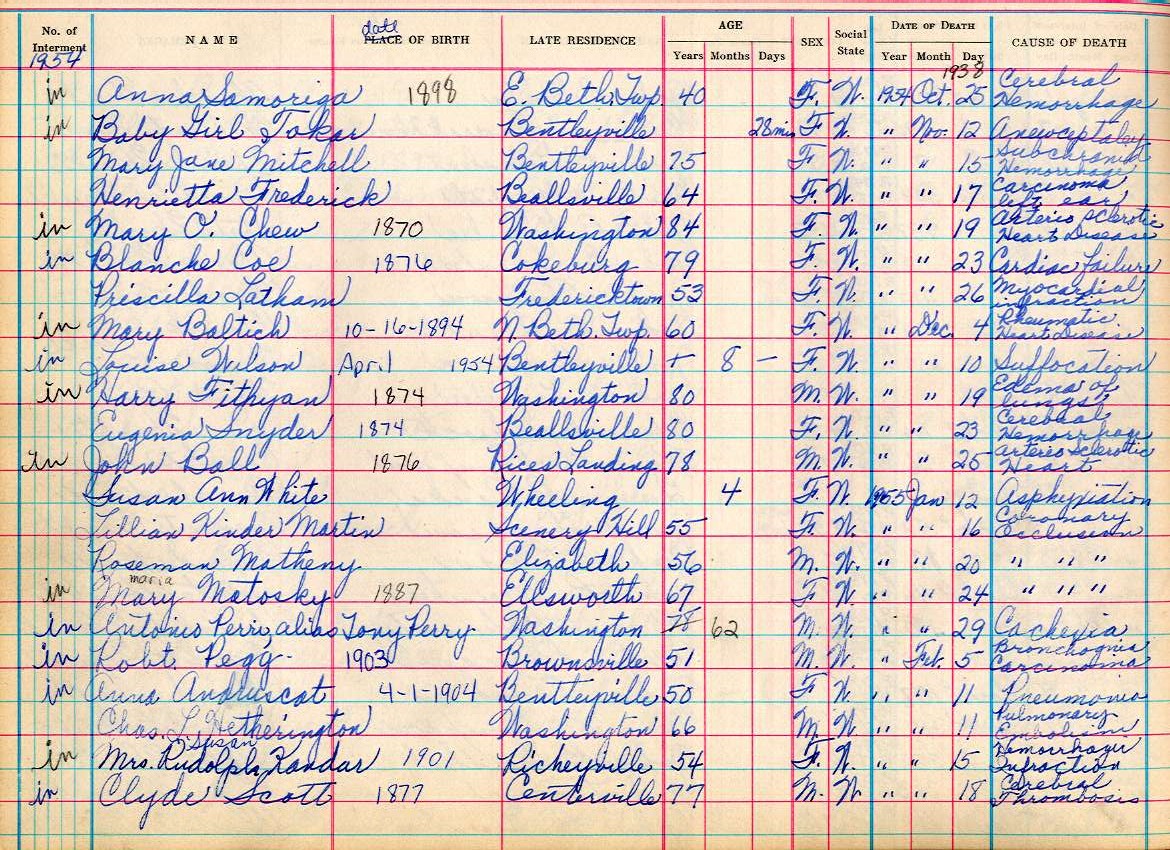 No. of Interment NAME date PLACE OF BIRTH LATE RESIDENCE AGE Years Months Days SEX Social State DATE OF DEATH Year Month Day CAUSE OF DEATH
1954 1938
in Anna Samoriga 1898 E. Beth. Twp. 40 F. W. 1954 Oct. 25 Cerebral Hemorrhage
in Baby Girl Tokar Bentleyville 28 min F W. " Nov. 12
Mary Jane Mitchell Bentleyville 75 F W. " " 15 Hemorrhage
Henrietta Frederick Beallsville 64 F. W. " " 17 Carcinoma left ear
in Mary O. Chew 1870 Washington 84 F. W. " " 19 Arterio Sclerotic Heart Disease
in Blanche Coe 1876 Cokeburg 79 F. W. " " 23 Cardiac Failure
Priscilla Latham Fredericktown 53 F W. " " 26 Myocardial infraction
in Mary Baltich 10-16-1894 N. Beth. Twp. 60 F. W. " Dec. 4 Rheumatic Heart Disease
in Louise Wilson April 1954 Bentleyville - 8 - F. W. " " 10 Suffocation
in Harry Fithyan 1874 Washington 80 M. W. " " 19 Edema of lungs
Eugenia Snyder 1874 Beallsville 80 F. W. " " 23 Cerebral Hemorrhage
in John Ball 1876 Rices Landing 78 M. W. " " 25 Arterio Sclerotic Heart
Susan Ann White Wheeling 4 F. W 1955 Jan 12 Asphyxiation
Lillian Kinder Martin Scenery Hill 55 F. W. " " 16 Coronary Occlusion
Roseman Matheny Elizabeth 56 M. W. " " 20 " " "
maria
in Mary Matosky 1887 Ellsworth 67 F W. " " 24 " " "
in Antonio Perri, alias Tony Perry Washington 78 62 M. W. " " 29 Cachexia
in Robt. Pegg 1903 Brownsville 51 M. W. " Feb. 5 Carcinoma
in Anna Andruscat 4-1-1904 Bentleyville 50 F W. " " 11 Pneumonia
Chas. L. Hetherington Washington 66 M. W " " 11 Pulmonary Embolism
Susan
in Mrs. Rudolph Kandar 1901 Richeyville 54 F. W. " " 15 Infraction
in Clyde Scott 1877 Centerville 77 M. W " " 18 Cerebral Thrombosis